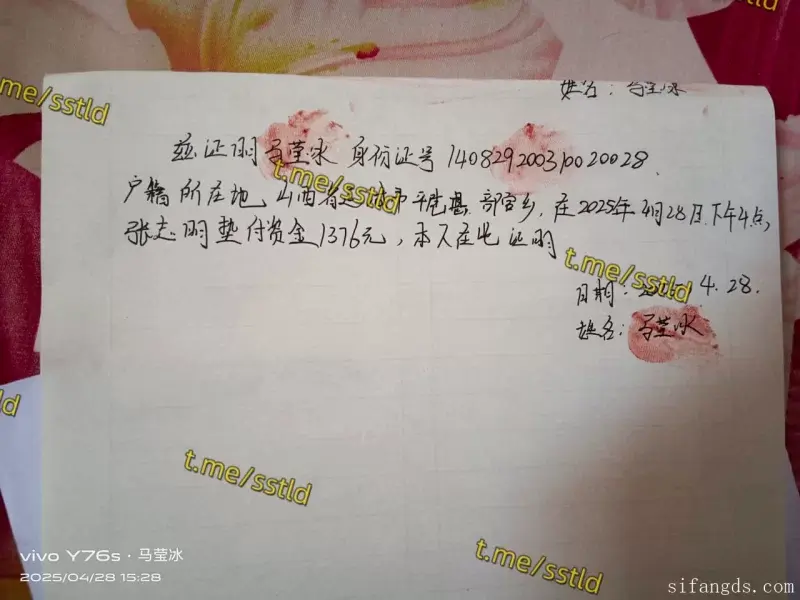 姓名:马莹冰
t.me/sstld
兹证明马莹冰 身份证号 140829200310020028.
t.me/sstld
户籍所在地 山西省运城市平陆县 部官乡, 在2025年4月28日下午4点,
张志明垫付资金1376元, 本人在此证明
t.me/sstld
日期: 4.28.
姓名:马莹冰
t.me/sstld
t.me/sstld
t.me/sstld
t.me/sstld
vivo Y76s · 马莹冰
2025/04/28 15:28
sifangds.com